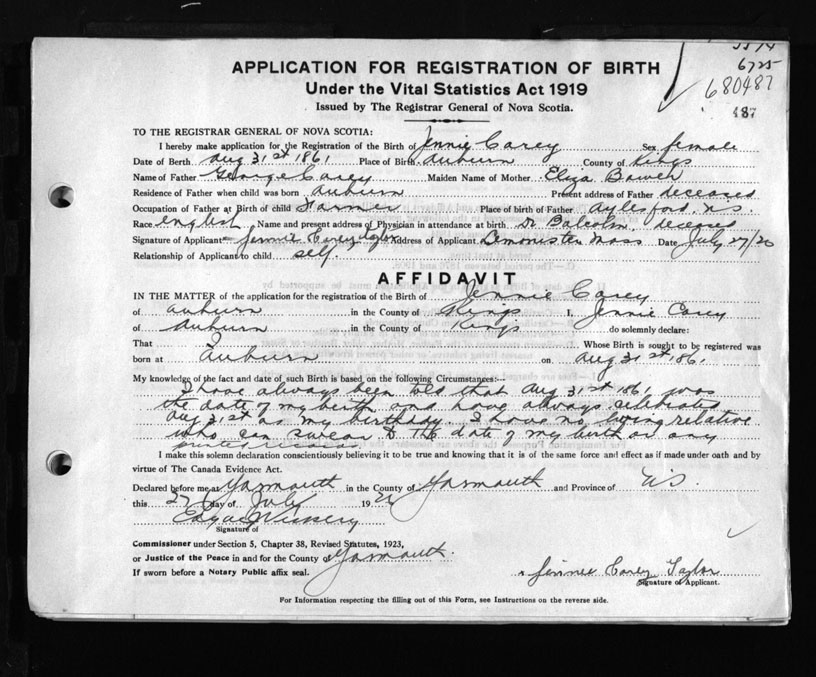 5574
6725
680487
487
APPLICATION FOR REGISTRATION OF BIRTH
Under the Vital Statistics Act 1919
Issued by The Registrar General of Nova Scotia.
TO THE REGISTRAR GENERAL OF NOVA SCOTIA:
I hereby make application for the Registration of the Birth of Jennie Carey Sex female
Date of Birth Aug 31st 1861 Place of Birth Auburn County of Kings
Name of Father George Carey Maiden Name of Mother Eliza Bowen
Residence of Father when child was born Auburn Present address of Father deceased
Occupation of Father at Birth of child Farmer Place of birth of Father Aylesford, N.S.
Race English Name and present address of Physician in attendance at birth Dr Balcolm, deceased
Signature of Applicant Jennie Carey Taylor Address of Applicant Leominster Mass Date July 27/26
Relationship of Applicant to child self.
AFFIDAVIT
IN THE MATTER of the application for the registration of the Birth of Jennie Carey
of Auburn in the County of Kings I, Jennie Carey
of Auburn in the County of Kings do solemnly declare:
That I Whose Birth is sought to be registered was
born at Auburn on Aug 31st 1861
My knowledge of the fact and date of such Birth is based on the following Circumstances:--
I have always been told that Aug 31st 1861 was
the date of my birth and have always celebrated
Aug 31st as my birthday. I have no living relative
who can swear to the date of my birth or any
Declared before me at Yarmouth in the County of Yarmouth and Province of N.S.
I make this solemn declaration conscientiously believing it to be true and knowing that it is of the same force and effect as if made under oath and by
virtue of The Canada Evidence Act.
this 27 day of July 19
Signature of
Commissioner under Section 5, Chapter 38, Revised Statutes, 1923,
or Justice of the Peace in and for the County of Yarmouth.
If sworn before a Notary Public affix seal.
Jennie Carey Taylor
Signature of Applicant.
For Information respecting the filling out of this Form, see Instructions on the reverse side.